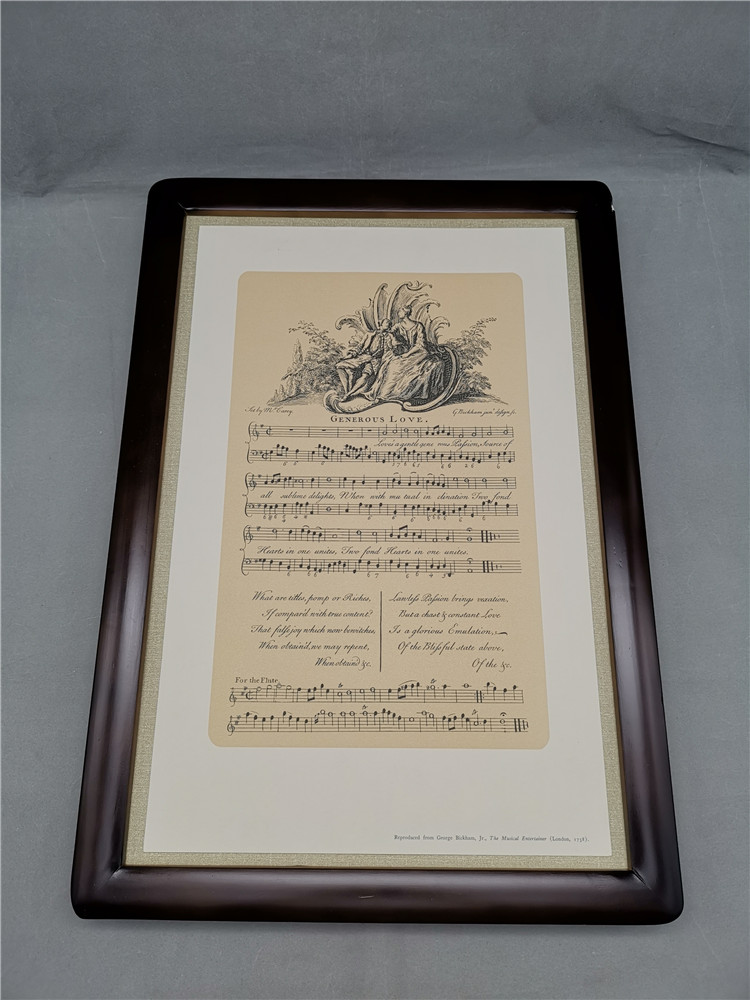 Set by Mr. Carey.
G. Bickham junr. design fc.
GENEROUS LOVE.
Love's a gentle gene rous Passion, Source of
all sublime delights, When with mu tual in clination Two fond
Hearts in one unites, Two fond Hearts in one unites.
What are titles, pomp or Riches,
If compar'd with true content?
That falss joy which now bewitches,
When obtain'd, we may repent,
When obtain'd &c.
Lawless Passion brings vexation,
But a chast & constant Love
Is a glorious Emulation,
Of the Blissful state above,
Of the &c.
For the Flute,
Reproduced from George Bickham, Jr., The Musical Entertainer (London, ).